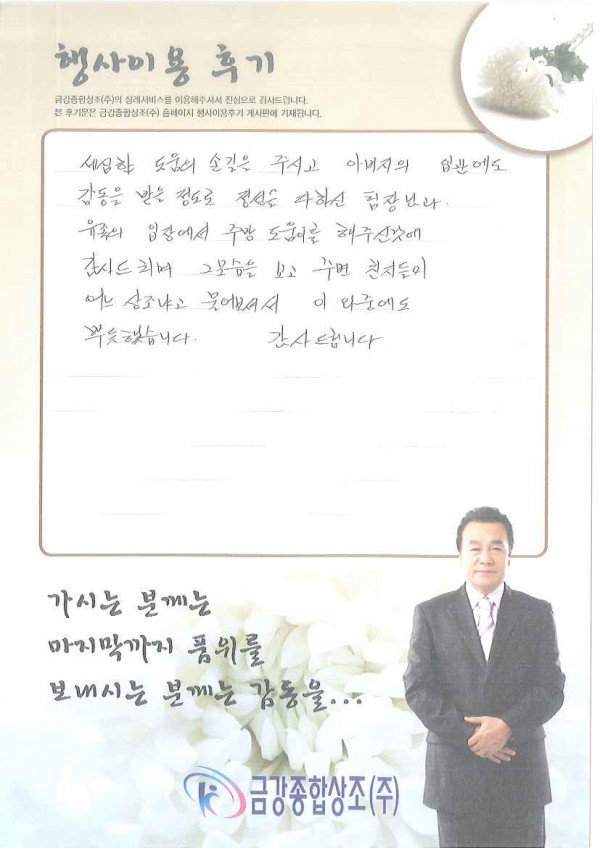 행사이용 후기
금강종합상조(주)의 장례서비스를 이용해주셔서 진심으로 감사드립니다.
본 후기문은 금강종합상조(주) 홈페이지 행사이용후기 게시판에 기재됩니다.
세심한 도움의 손길을 주시고 아버지의 입관에도
감동을 받을 정도로 정성을 다하신 팀장님과.
유족의 입장에서 주방 도움이를 해주신것에
감사드리며 그모습을 보고 주변 친지들이
어느 상조냐고 물어보셔서 이 와중에도
뿌듯했습니다. 감사드립니다
가시는 분께는
마지막까지 품위를
보내시는 분께는 감동을...
금강종합상조(주)